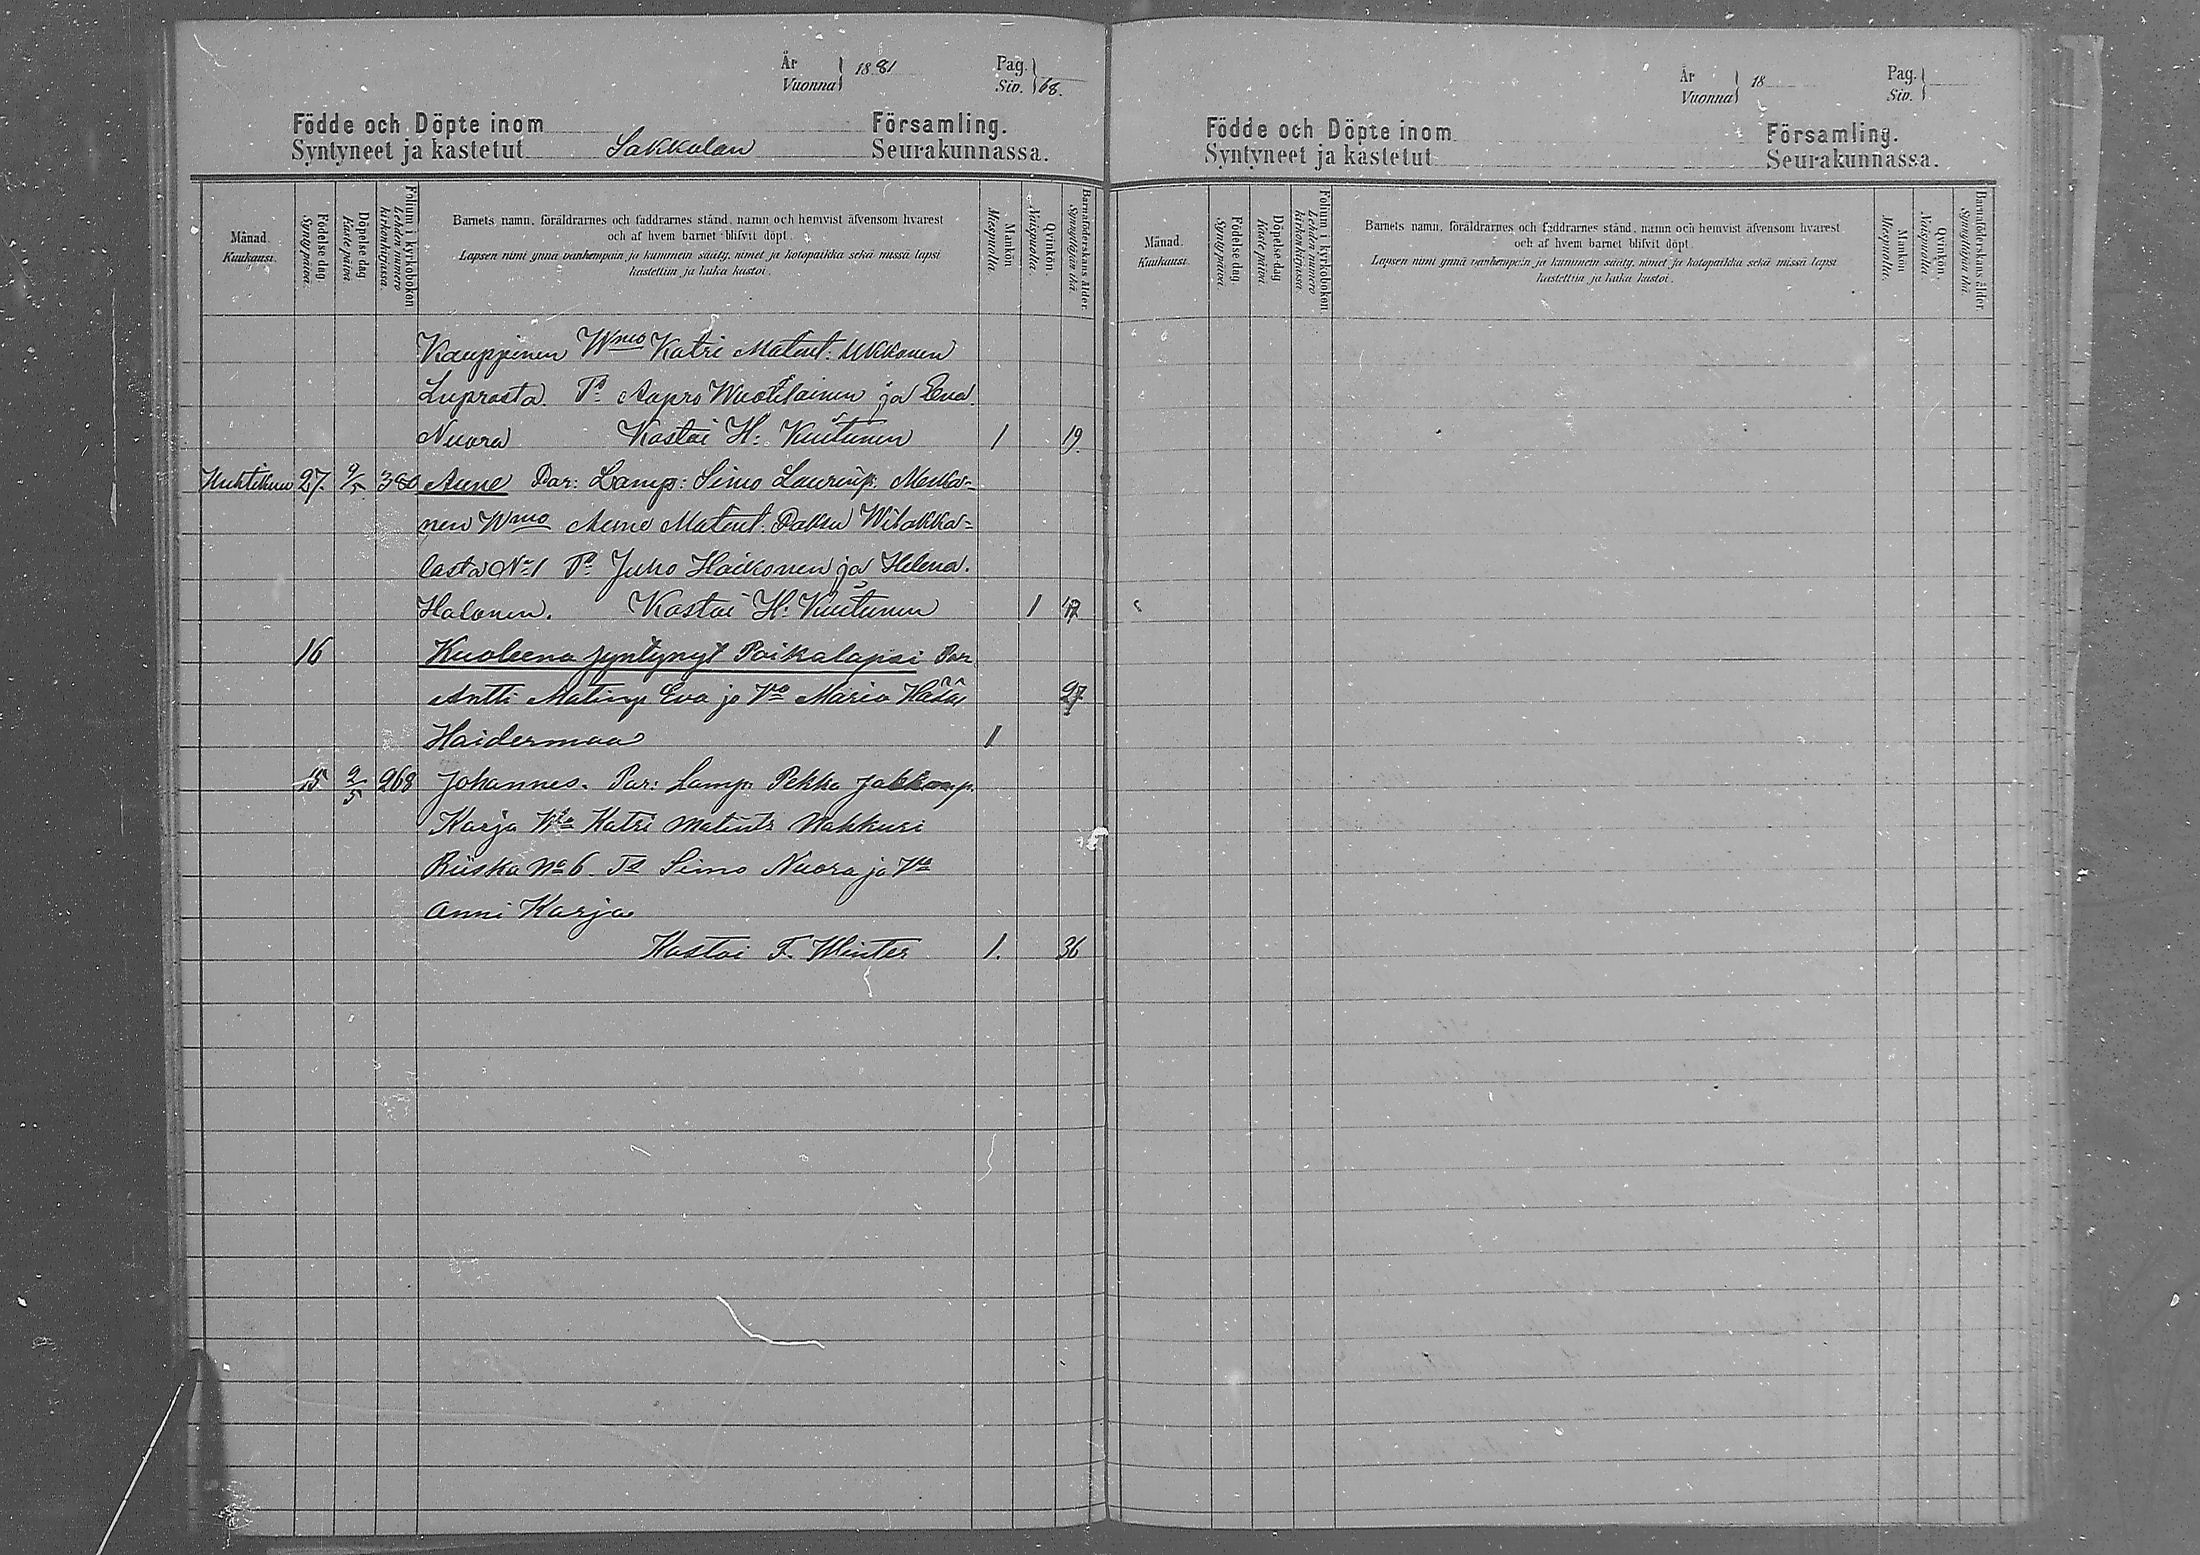 År
Vuonna 1881
Pag.
Siv. 68.
Födde och Döpte inom Församling.
Syntyneet ja kastetut Sakkolan Seurakunnassa.
Månad. Kuukausi.
Födelse dag. Syntypäivä.
Döpelse dag. Kaste päivä.
Folium i kyrkoboken. Lehden numero kirkonkirjassa.
Barnets namn, föräldrarnes och faddrarnes stånd, namn och hemvist äfvensom hvarest
och af hvem barnet blifvit döpt.
Lapsen nimi ynnä vanhempain ja kummein sääty, nimet ja kotopaikka sekä missä lapsi
kastettiin ja kuka kastoi.
Mankön. Miespuolia.
Qvinkön. Vaispuolia.
Barnaföderskans ålder. Synnyttäjän ikä.
Kauppinen Wmo Katri Matint: Ukkonen
Luprasta. Ts Aapro Wuotilainen ja Eva
Nuora Kastoi H: Kuutunen 1 19.
Huhtikuu 27. 9/5. 380 Anne Var: Lamp: Simo Laurinp:
nen Wmo Matint:
lasta No 1 Ts Juho Haikonen ja Helena
Halonen. Kastoi H: Kuutunen 1
16 Kuoleena syntynyt Poikalapsi Var
Antti Matinp Eva ja Vo Maria 27
Haidermaa 1
15 2/5 268 Johannes. Var: Lamp. Pekka
Karja Katri Matints Nahkuri
Riiska No 6. Ts Simo Nuora ja Vo
Anni Karja
Kastoi F. Winter 1. 36
År
Vuonna 18
Pag.
Siv.
Födde och Döpte inom Församling.
Syntyneet ja kastetut Seurakunnassa.
Månad. Kuukausi.
Födelse dag. Syntypäivä.
Döpelse-dag. Kaste päivä.
Folium i kyrkoboken. Lehden numero kirkonkirjassa.
Barnets namn, föräldrarnes och faddrarnes stånd, namn och hemvist äfvensom hvarest
och af hvem barnet blifvit döpt.
Lapsen nimi ynnä vanhempain ja kummein sääty, nimet ja kotopaikka sekä missä lapsi
kastettiin ja kuka kastoi.
Mankön. Miespuolia.
Qvinkön. Vaispuolia.
Barnaföderskans ålder. Synnyttäjän ikä.